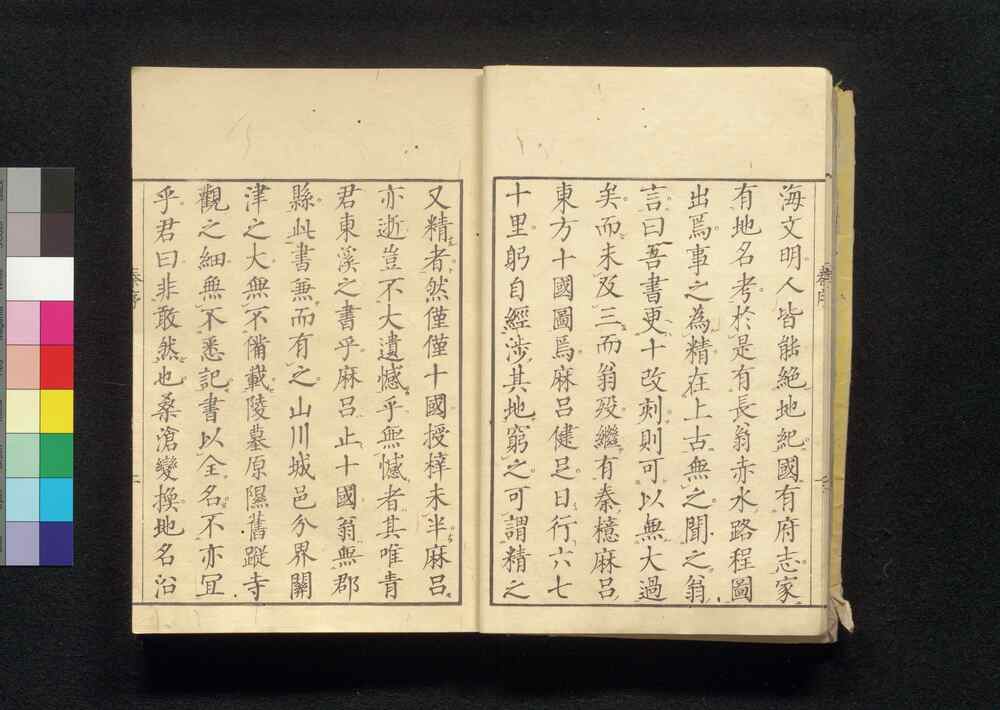 海文明人皆能絶地紀國有府志家
有地名考於是有長翁赤水路程圖
出焉事之為精在上古無之聞之翁
言曰吾書更十改刻則可以無大過
矣而未及三而翁歿繼有秦檍麻呂
東方十國圖焉麻呂健足日行六七
十里躬自經涉其地窮之可謂精之
又精者然僅僅十國授梓未半麻呂
亦逝豈不大遺憾乎無憾者其唯青
君東溪之書乎麻呂止十國翁無郡
縣此書兼而有之山川城邑分界關
津之大無不備載陵墓原隰舊蹤寺
觀之細無不悉記書以全名不亦宜
乎君曰非敢然也桑滄變換地名沿